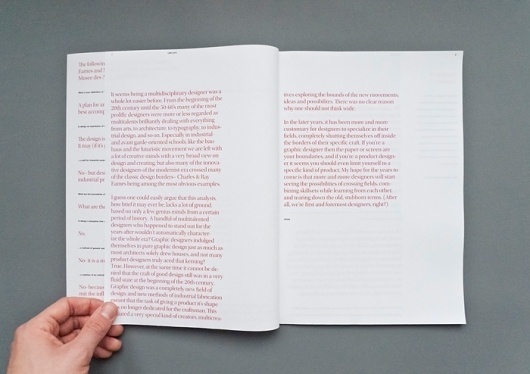 The followin
Eames and
Muses des
A plan for as
best accomp
The design is
It may (if it's
No- but des
industrial pr
What are the
No.
No- it is a m
No- because
It seems being a multidisciplinary designer was a
whole lot easier before. From the beginning of the
20th century until the 50-60's many of the most
prolific designers were more or less regarded as
multitalents brilliantly dealing with everything
from arts, to architecture, to typography, to indus-
trial design, and so on. Especially so industrial
and avant-garde-oriented schools, like the bau-
haus and the futuristic movement we are left with
a lot of creative minds with a very broad view on
design and creating, but also many of the innova-
tive designers of the modernist era crossed many
of the classic design borders- Charles & Ray
Eames being among the most obvious examples.
I guess one could easily argue that this analysis,
how bird it may ever be, lacks a lot of ground,
based on only a few genius minds from a certain
period of history. A handful of multitalented
designers who happened to stand out for the
years after wouldn't automatically character-
ize the whole era? Graphic designers indulged
themselves in pure graphic design just as much as
most architects solely drew houses, and not many
product designers truly aced that kerning?
True. However, at the same time it cannot be de-
nied that the craft of good design still was in a very
fluid state at the beginning of the 20th century.
Graphic design was a completely new field of
design, and new methods of industrial fabrication
meant that the task of giving a product it's shape
was no longer dedicated for the craftsman. This
created a very special kind of creators, multitens-
tives exploring the bounds of the new movements,
ideas and possibilities. There was no clear reason
why one should not think wide.
In the later years, it has been more and more
customary for designers to specialize in their
fields, completely shutting themselves off inside
the borders of their specific craft. If you're a
graphic designer then the paper or screen are
your boundaries, and if you're a product design-
er it seems you should even limit yourself to a
specific kind of product. My hope for the years to
come is that more and more designers will start
seeing the possibilities of crossing fields, com-
bining skillsets while learning from each other,
and tearing down the old, stubborn terms. (After
all, we're first and foremost designers, right?)